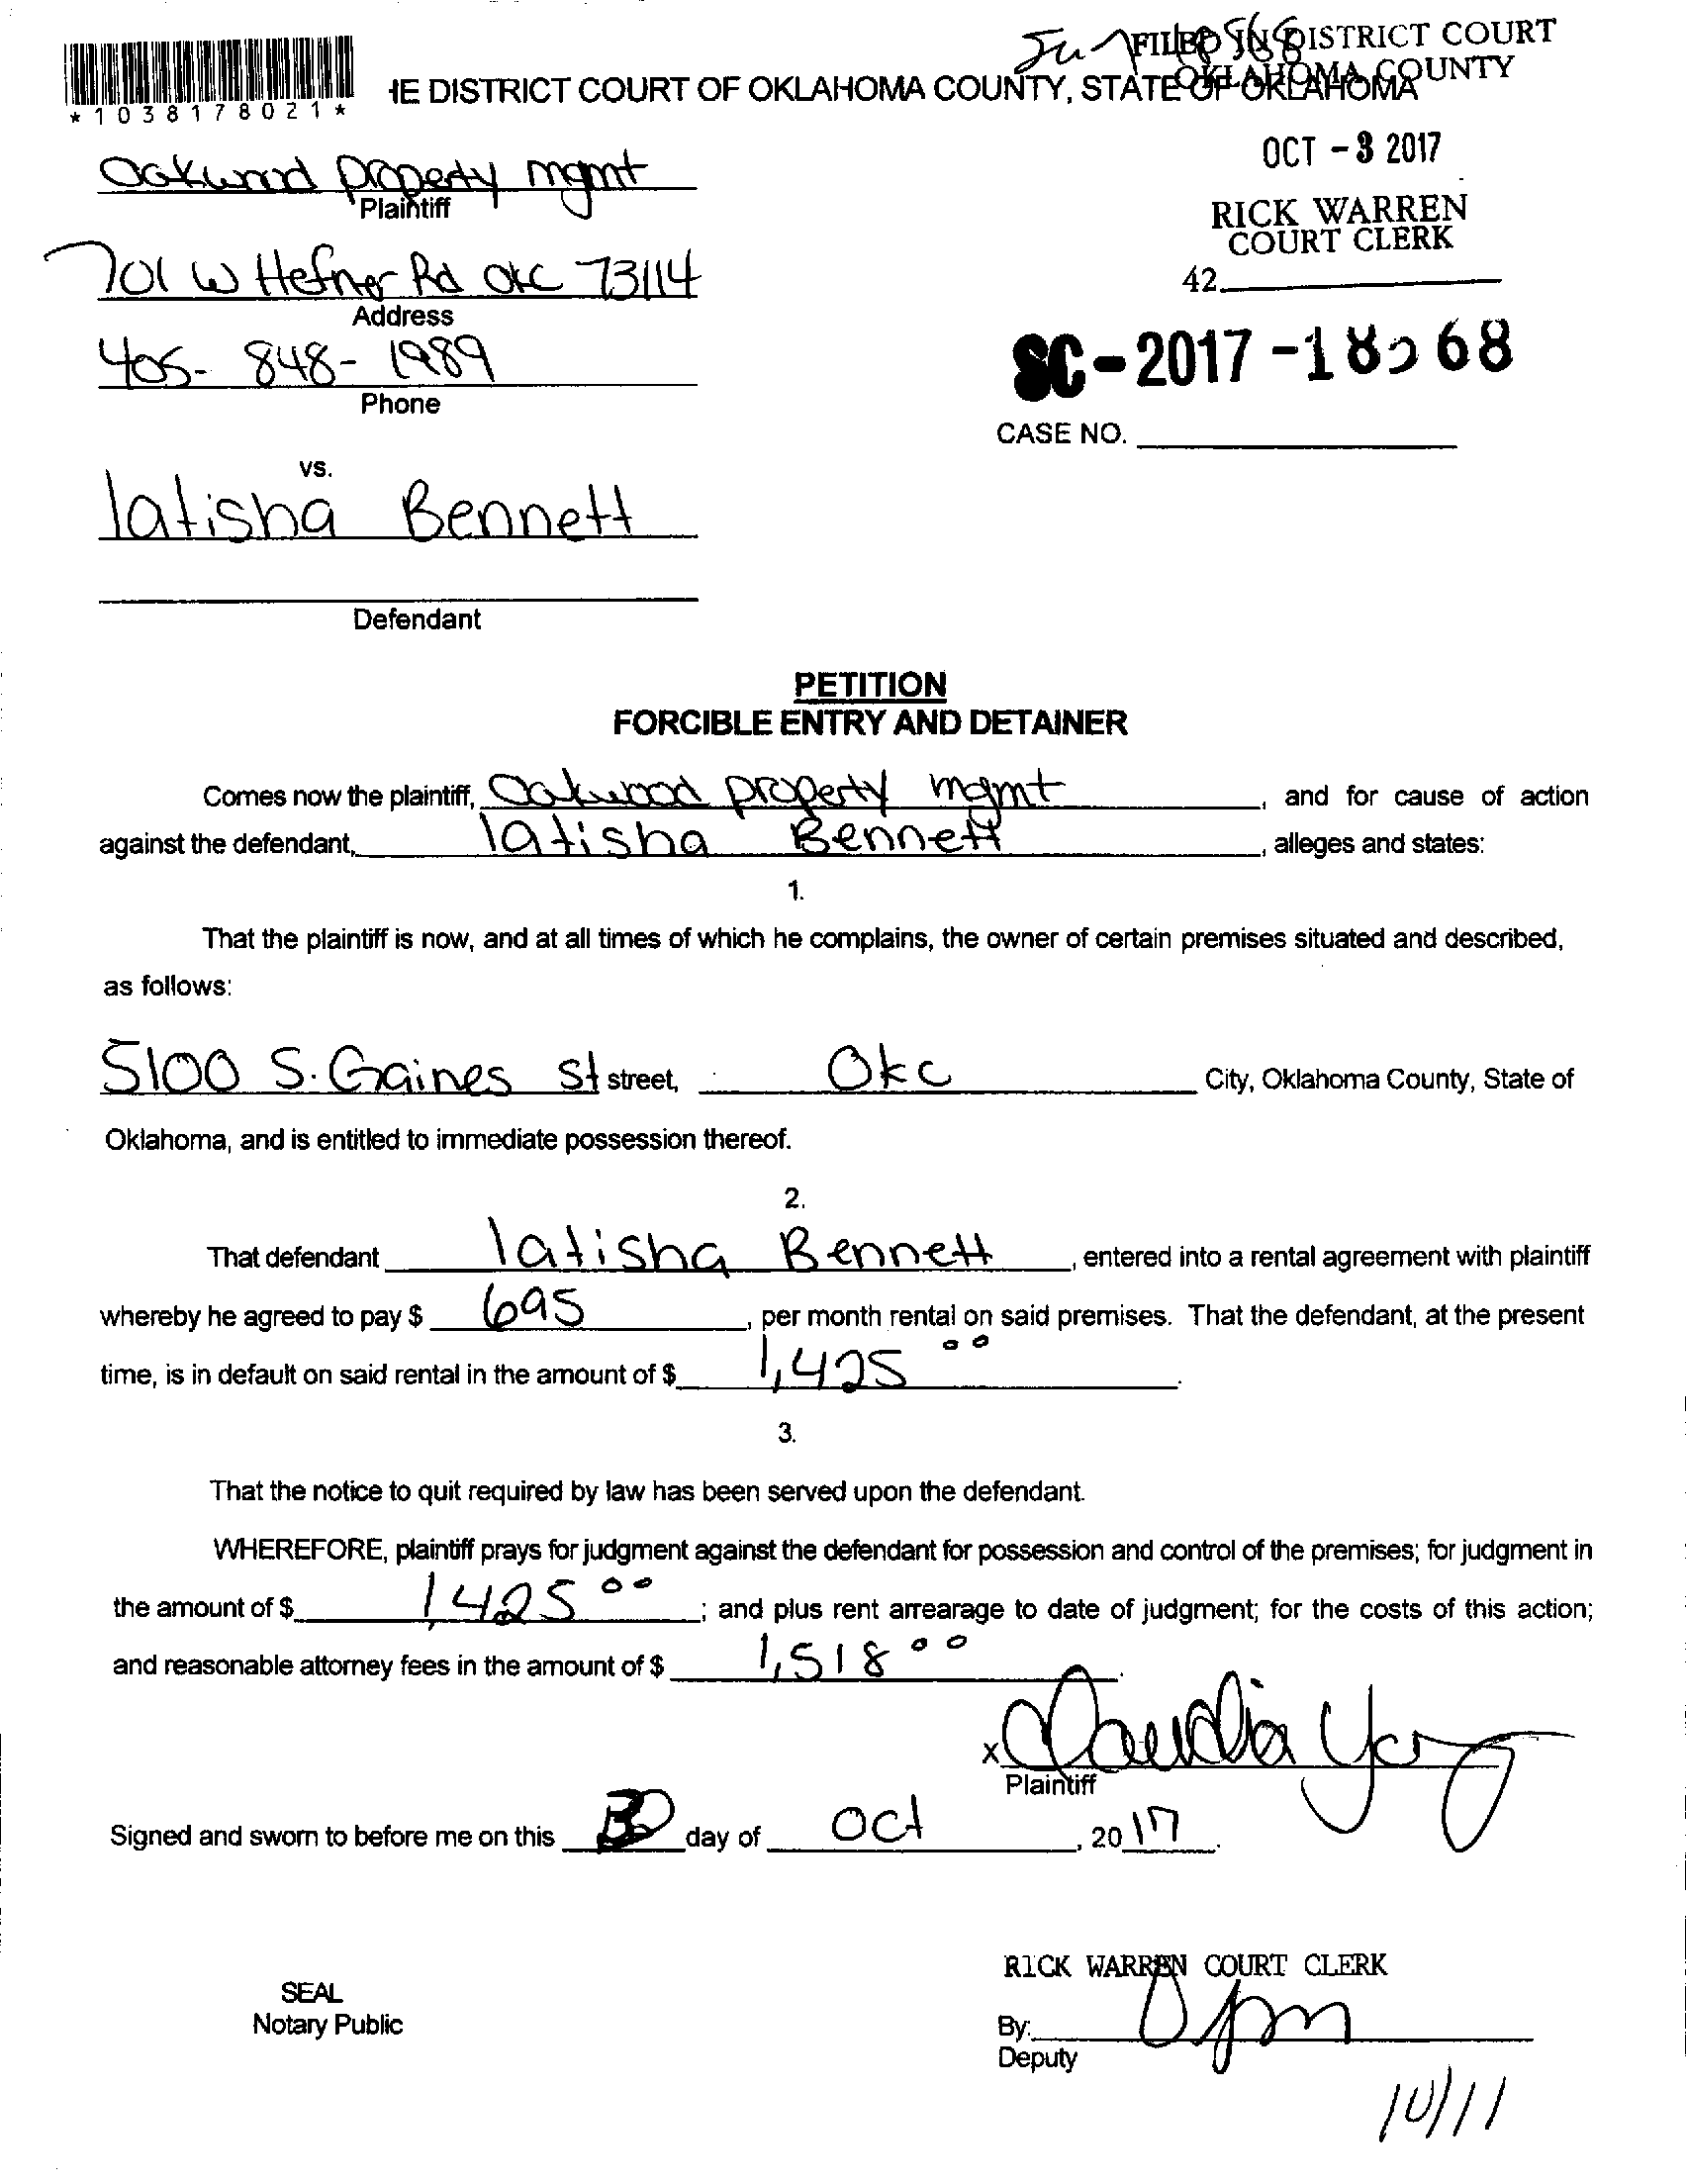 FILED IN DISTRICT COURT
OKLAHOMA COUNTY
*1038178021*
HE DISTRICT COURT OF OKLAHOMA COUNTY, STATE OF OKLAHOMA
OCT - 3 2017
RICK WARREN
COURT CLERK
42
Oakwood property mgmt
Plaintiff
701 W Hefner Rd OKC 73114
Address
405- 848- 1989
Phone
SC-2017-18568
CASE NO.
vs.
latisha Bennett
Defendant
PETITION
FORCIBLE ENTRY AND DETAINER
Comes now the plaintiff, Oakwood property mgmt, and for cause of action
against the defendant, latisha Bennett, alleges and states:
1.
That the plaintiff is now, and at all times of which he complains, the owner of certain premises situated and described,
as follows:
5100 S. Gaines St street, Okc City, Oklahoma County, State of
Oklahoma, and is entitled to immediate possession thereof.
2.
That defendant latisha Bennett, entered into a rental agreement with plaintiff
whereby he agreed to pay $ 695, per month rental on said premises. That the defendant, at the present
time, is in default on said rental in the amount of $ 1,425 00.
3.
That the notice to quit required by law has been served upon the defendant.
WHEREFORE, plaintiff prays for judgment against the defendant for possession and control of the premises; for judgment in
the amount of $ 1,425 00; and plus rent arrearage to date of judgment; for the costs of this action;
and reasonable attorney fees in the amount of $ 1,518 00.
x Claudia
Plaintiff
Signed and sworn to before me on this day of Oct, 2017.
RICK WARREN COURT CLERK
SEAL
Notary Public
By:
Deputy
10/11